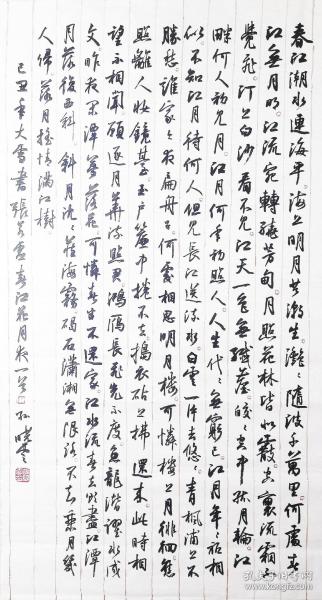 春江潮水連海平海上明月共潮生灩々隨波千萬里何處春
江無月明江流宛轉繞芳甸月照花林皆似霰空裏流霜不
覺飛汀上白沙看不見江天一色無纖塵皎々空中孤月輪江
畔何人初見月江月何年初照人人生代々無窮已江月年々祇相
似不知江月待何人但見長江送流水白雲一片去悠々青楓浦上不
勝愁誰家今夜扁舟子何處相思明月樓可憐樓上月徘徊應
照離人妝鏡臺玉戶簾中捲不去搗衣砧上拂還來此時相
望不相聞願逐月華流照君鴻雁長飛光不度魚龍潛躍水成
文昨夜閑潭夢落花可憐春半不還家江水流春去欲盡江潭
月落復西斜斜月沉々藏海霧碣石瀟湘無限路不知乘月幾
人歸落月搖情滿江樹
己丑年大雪書張若虛春江花月夜一首 孫曉雲